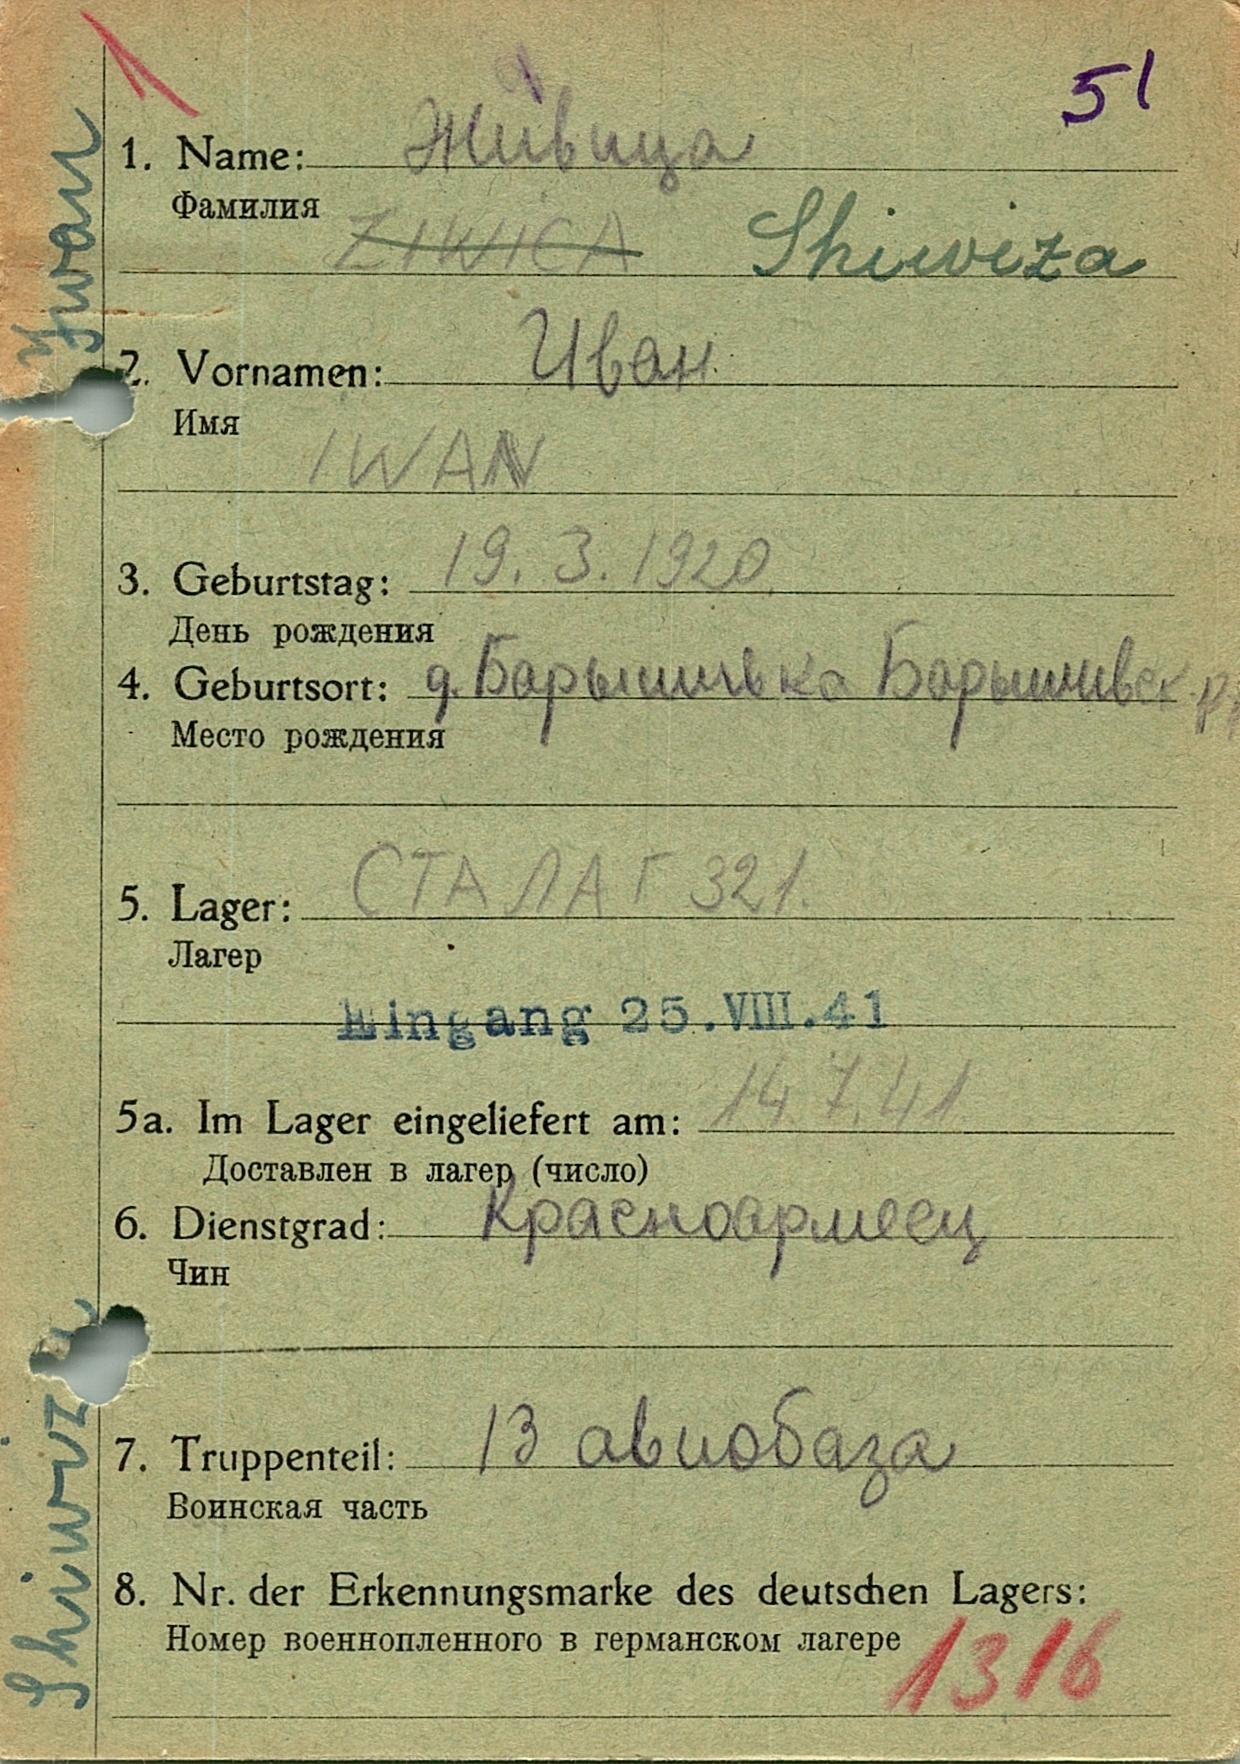 51
1. Name: Живица
Фамилия
ZIWICA Shiwiza
2. Vornamen: Иван
Имя
IWAN
3. Geburtstag: 19. 3. 1920
День рождения
4. Geburtsort: д. Барышивка Барышивск. р.
Место рождения
5. Lager: СТАЛАГ 321.
Лагер
Eingang 25.VIII.41
5a. Im Lager eingeliefert am: 14.7.41
Доставлен в лагер (число)
6. Dienstgrad: Красноармеец
Чин
7. Truppenteil: 13 авиобаза
Воинская часть
8. Nr. der Erkennungsmarke des deutschen Lagers:
Номер военнопленного в германском лагере 1316
Shiwiza Iwan